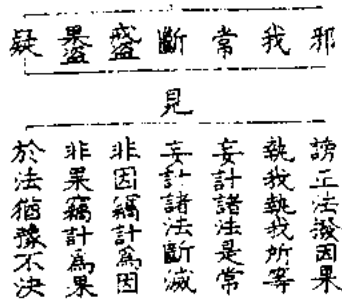 邪
我
常
斷
戒盜
果盜
疑
見
謗正法撥因果
執我執我所等
妄計諸法是常
妄計諸法斷滅
非因竊計爲因
非果竊計爲果
於法猶豫不決